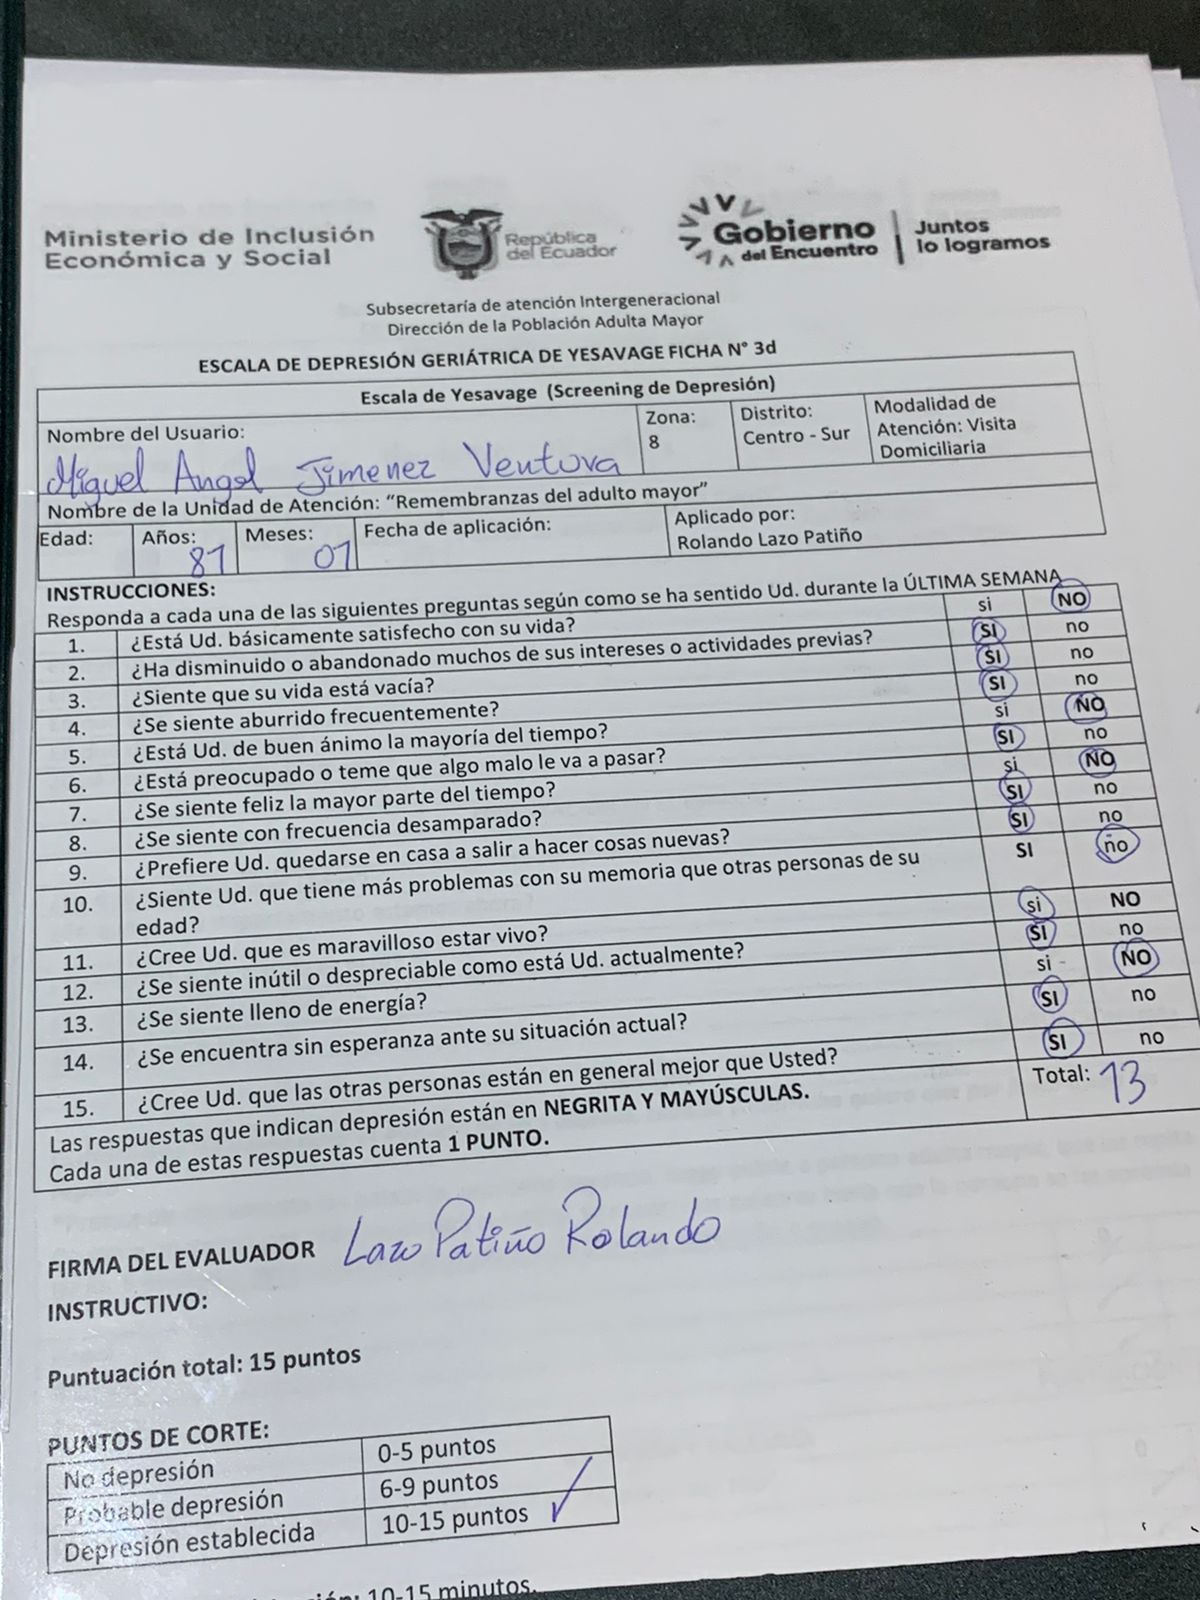 Ministerio de Inclusión
Económica y Social
República
del Ecuador
Gobierno
del Encuentro
Juntos
lo logramos
Subsecretaría de atención Intergeneracional
Dirección de la Población Adulta Mayor
ESCALA DE DEPRESIÓN GERIÁTRICA DE YESAVAGE FICHA N° 3d
Escala de Yesavage (Screening de Depresión)
Nombre del Usuario:
Miguel Angel Jimenez Ventura
Zona:
8
Distrito:
Centro - Sur
Modalidad de
Atención: Visita
Domiciliaria
Nombre de la Unidad de Atención: "Remembranzas del adulto mayor"
Edad: Años: 81 Meses: 01 Fecha de aplicación:
Aplicado por:
Rolando Lazo Patiño
INSTRUCCIONES:
Responda a cada una de las siguientes preguntas según como se ha sentido Ud. durante la ÚLTIMA SEMANA
1. ¿Está Ud. básicamente satisfecho con su vida? si NO
2. ¿Ha disminuido o abandonado muchos de sus intereses o actividades previas? SI no
3. ¿Siente que su vida está vacía? SI no
4. ¿Se siente aburrido frecuentemente? SI no
5. ¿Está Ud. de buen ánimo la mayoría del tiempo? si NO
6. ¿Está preocupado o teme que algo malo le va a pasar? SI no
7. ¿Se siente feliz la mayor parte del tiempo? si NO
8. ¿Se siente con frecuencia desamparado? SI no
9. ¿Prefiere Ud. quedarse en casa a salir a hacer cosas nuevas? SI no
10. ¿Siente Ud. que tiene más problemas con su memoria que otras personas de su SI no
edad?
11. ¿Cree Ud. que es maravilloso estar vivo? si NO
12. ¿Se siente inútil o despreciable como está Ud. actualmente? SI no
13. ¿Se siente lleno de energía? si NO
14. ¿Se encuentra sin esperanza ante su situación actual? SI no
15. ¿Cree Ud. que las otras personas están en general mejor que Usted? SI no
Las respuestas que indican depresión están en NEGRITA Y MAYÚSCULAS. Total: 13
Cada una de estas respuestas cuenta 1 PUNTO.
FIRMA DEL EVALUADOR Lazo Patiño Rolando
INSTRUCTIVO:
Puntuación total: 15 puntos
PUNTOS DE CORTE:
No depresión 0-5 puntos
Probable depresión 6-9 puntos
Depresión establecida 10-15 puntos ✓
10-15 minutos.